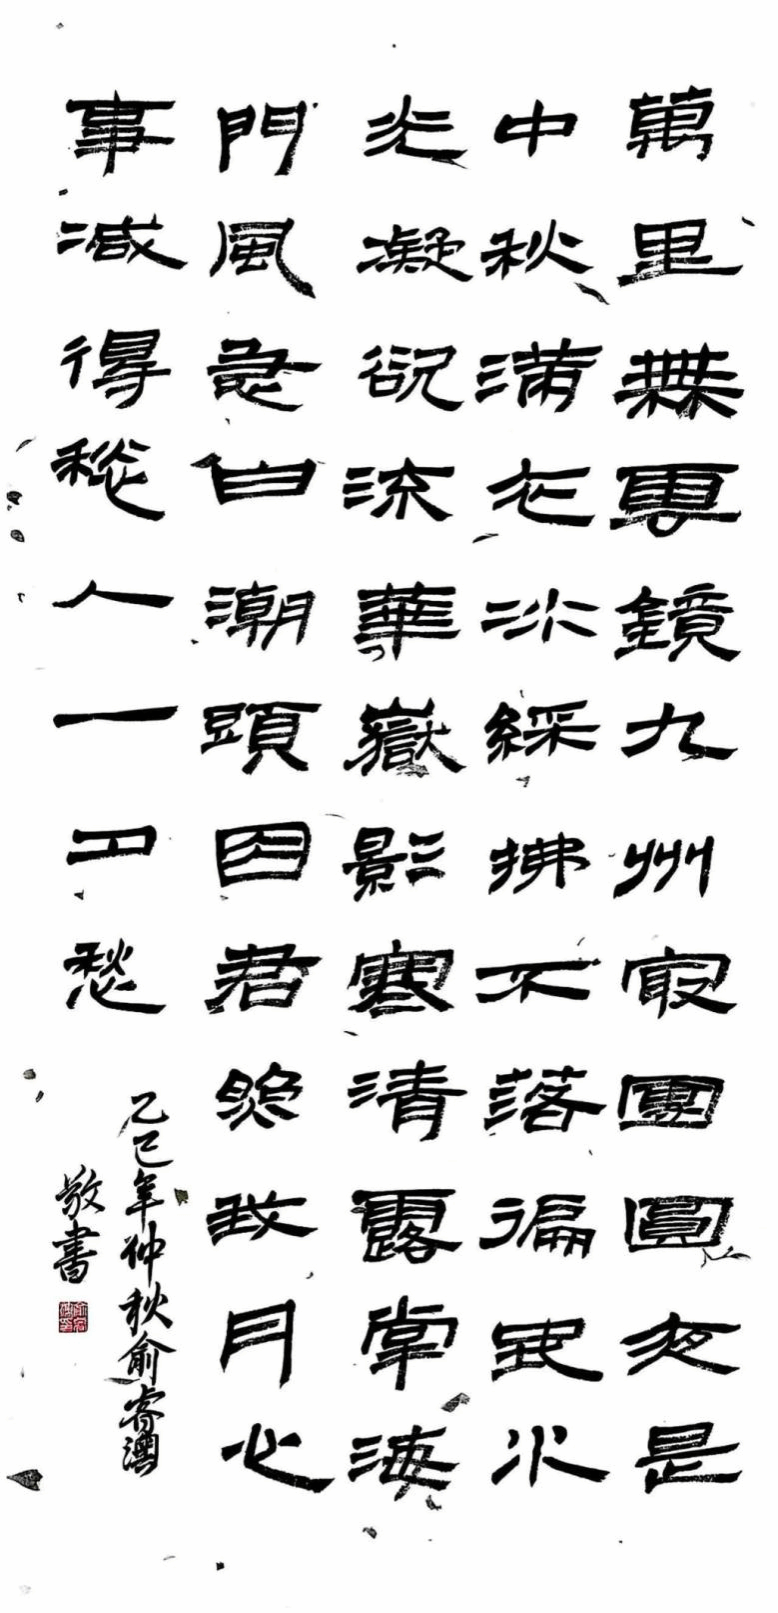 萬里無雲鏡九州最團圓夜是
中秋滿衣冰綵拂不落徧地水
光凝欲流華嶽影寒清露掌海
門風急白潮頭因君照我丹心
事減得愁人一夕愁
乙巳年仲秋俞睿澳
敬書